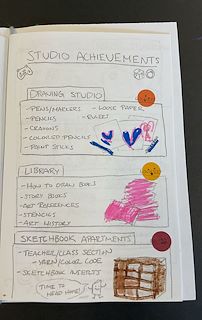 STUDIO ACHIEVEMENTS
DRAWING STUDIO
- PENS/MARKERS - LOOSE PAPER
- PENCILS - RULERS
- CRAYONS
- COLORED PENCILS
- PAINT STICKS
LIBRARY
- HOW TO DRAW BOOKS
- STORY BOOKS
- ART REFERENCES
- STENCILS
- ART HISTORY
SKETCHBOOK APARTMENTS
- TEACHER/CLASS SECTION
- YARN/COLOR CODE
- SKETCHBOOK INSERTS
TIME TO
HEAD HOME!